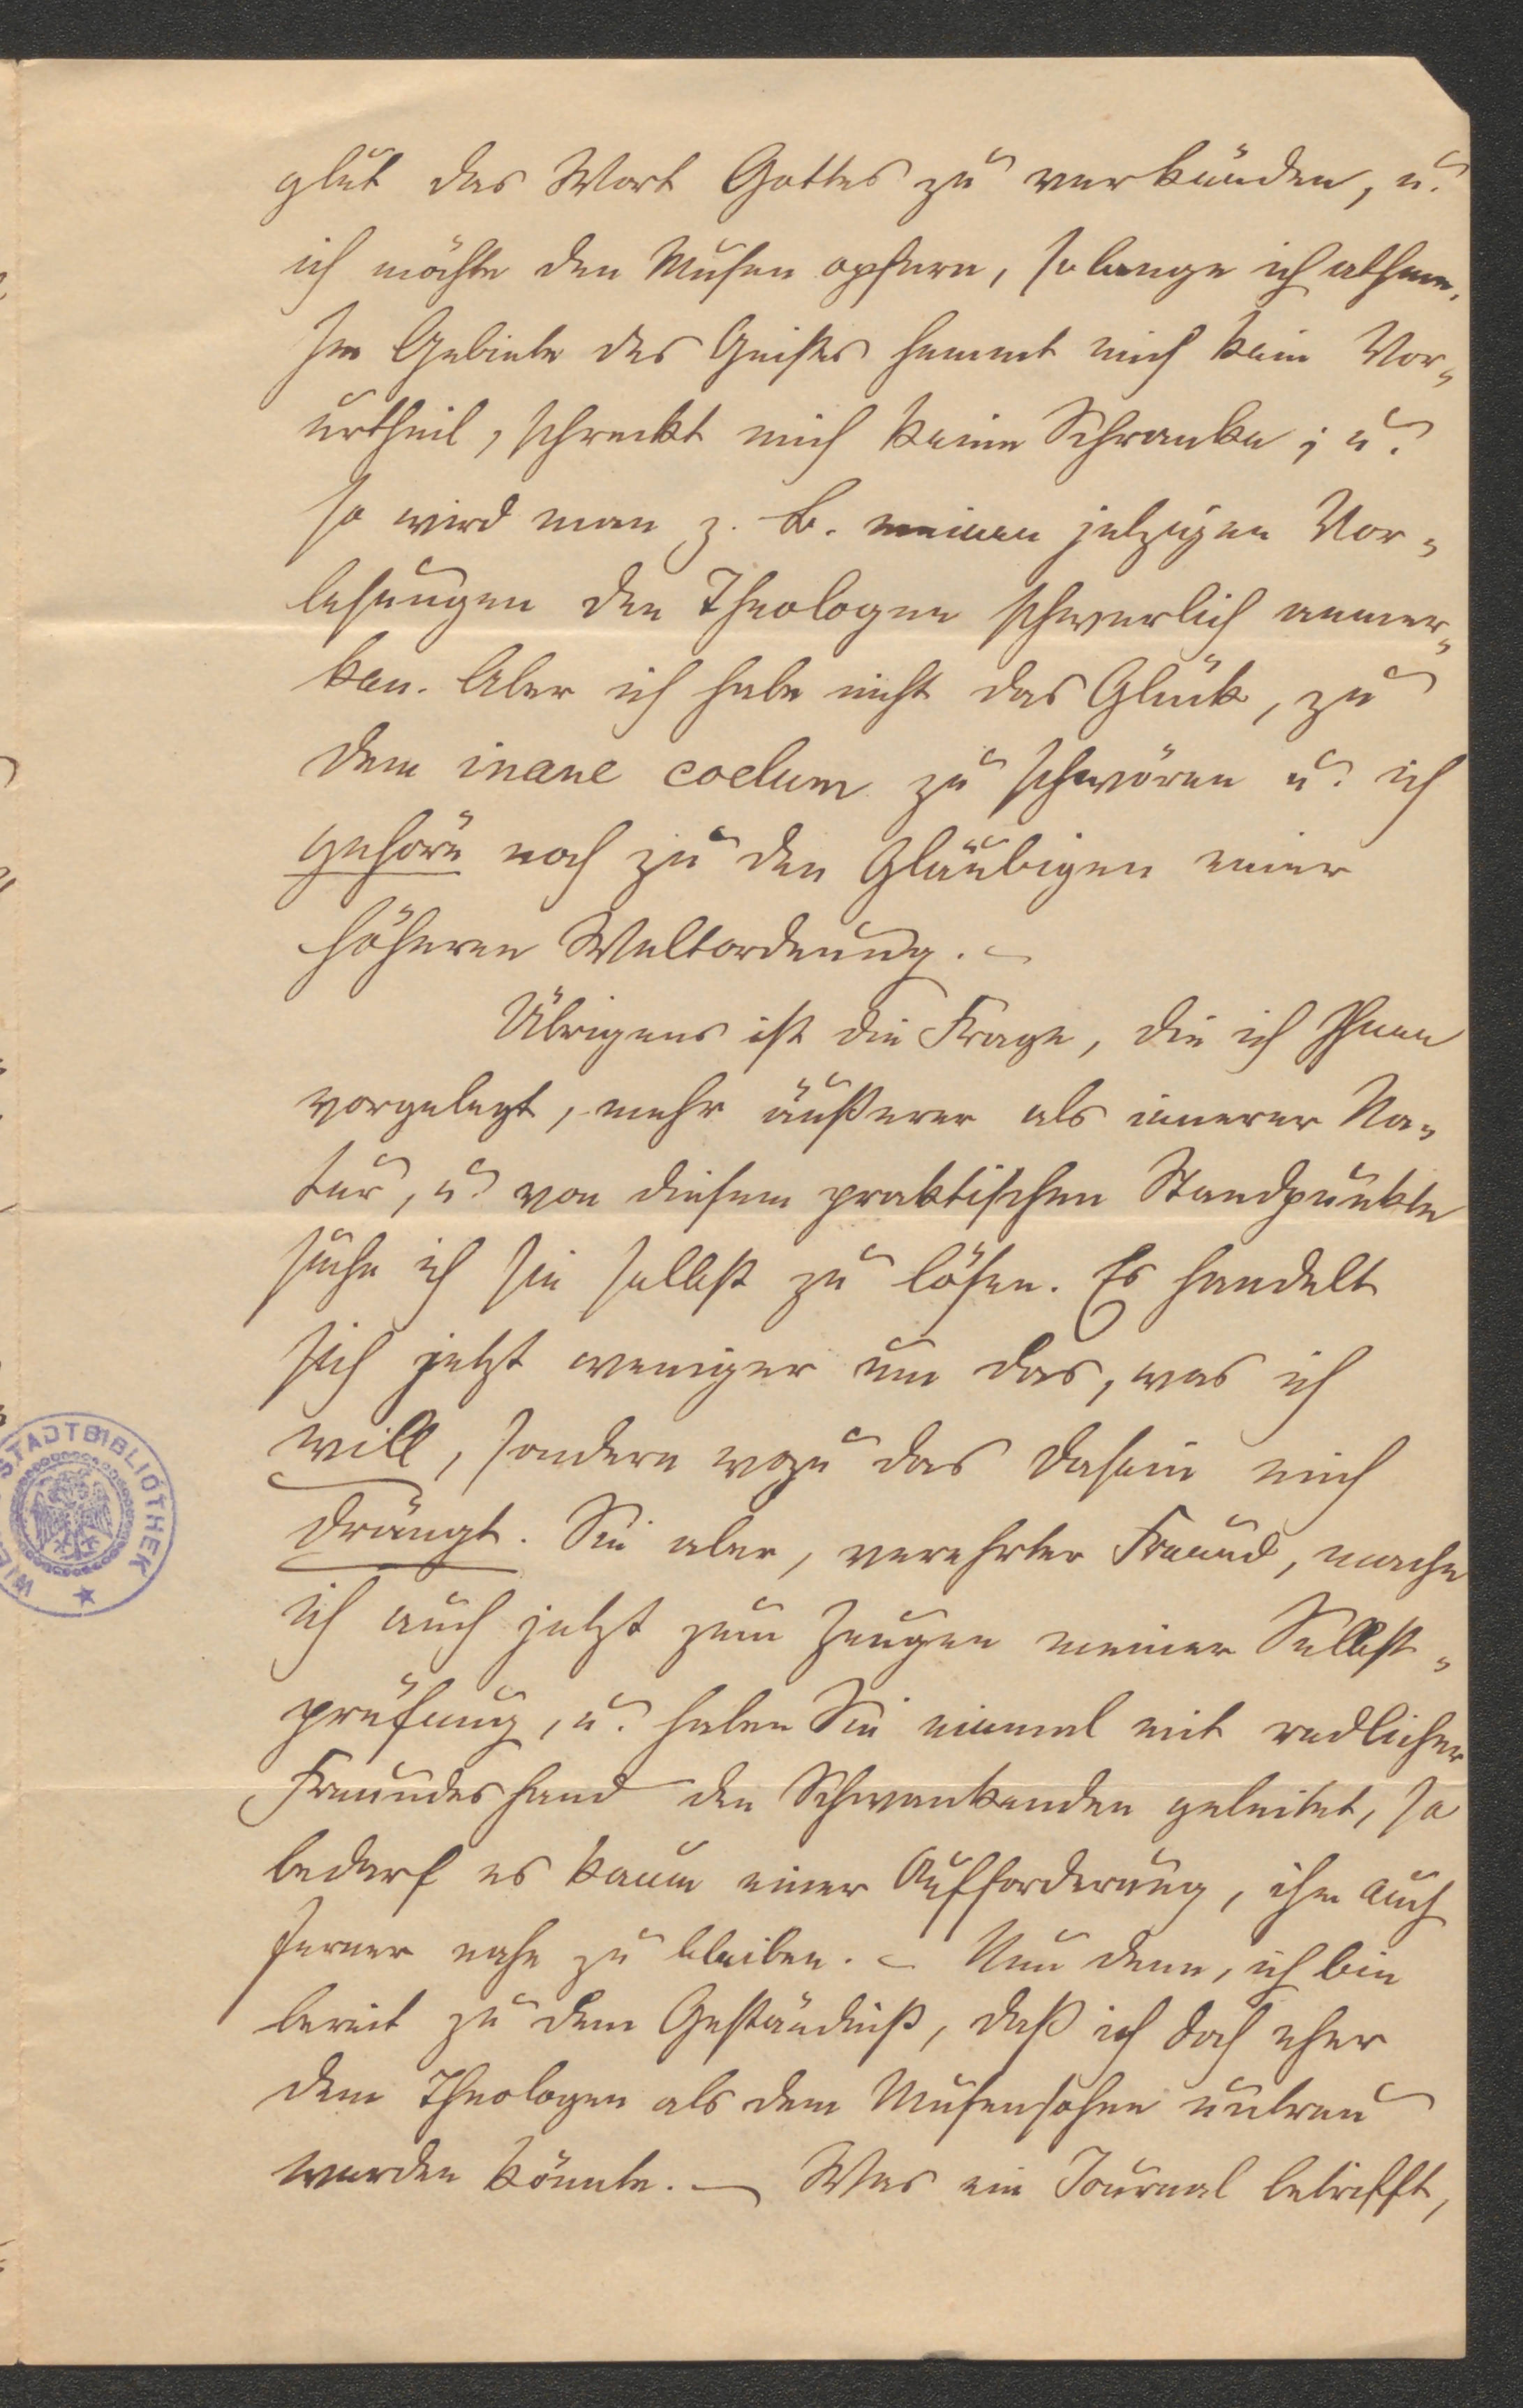 glut das Wort Gottes zu verkünden, u.
ich möchte den Musen opfern, so lange ich athme.
Im Gebiete des Geistes hemmt mich kein Vor-
urtheil, schreckt mich keine Schranke; u.
so wird man z. B. meinen jetzigen Vor-
lesungen den Theologen schwerlich anmer-
ken. Aber ich habe nicht das Glück, zu
dem inane coelum zu schwören u. ich
gehöre noch zu den Gläubigen einer
höheren Weltordnung. –
Übrigens ist die Frage, die ich Ihnen
vorgelegt, mehr äußerer als innerer Na-
tur, u. von diesem praktischen Standpunkte
suche ich sie selbst zu lösen. Es handelt
sich jetzt weniger um das, was ich
will, sondern wozu das Dasein mich
drängt. Sie aber, verehrter Freund, mache
ich auch jetzt zum Zeugen meiner Selbst-
prüfung, u. haben Sie einmal mit redlicher
Freundeshand den Schwankenden geleitet, so
bedarf es kaum einer Aufforderung, ihm auch
ferner nahe zu bleiben. – Nun denn, ich bin
bereit zu dem Geständniß, daß ich doch eher
dem Theologen als dem Musensohne untreu
werden könnte. – Was ein Journal betrifft,
WIENER STADTBIBLIOTHEK